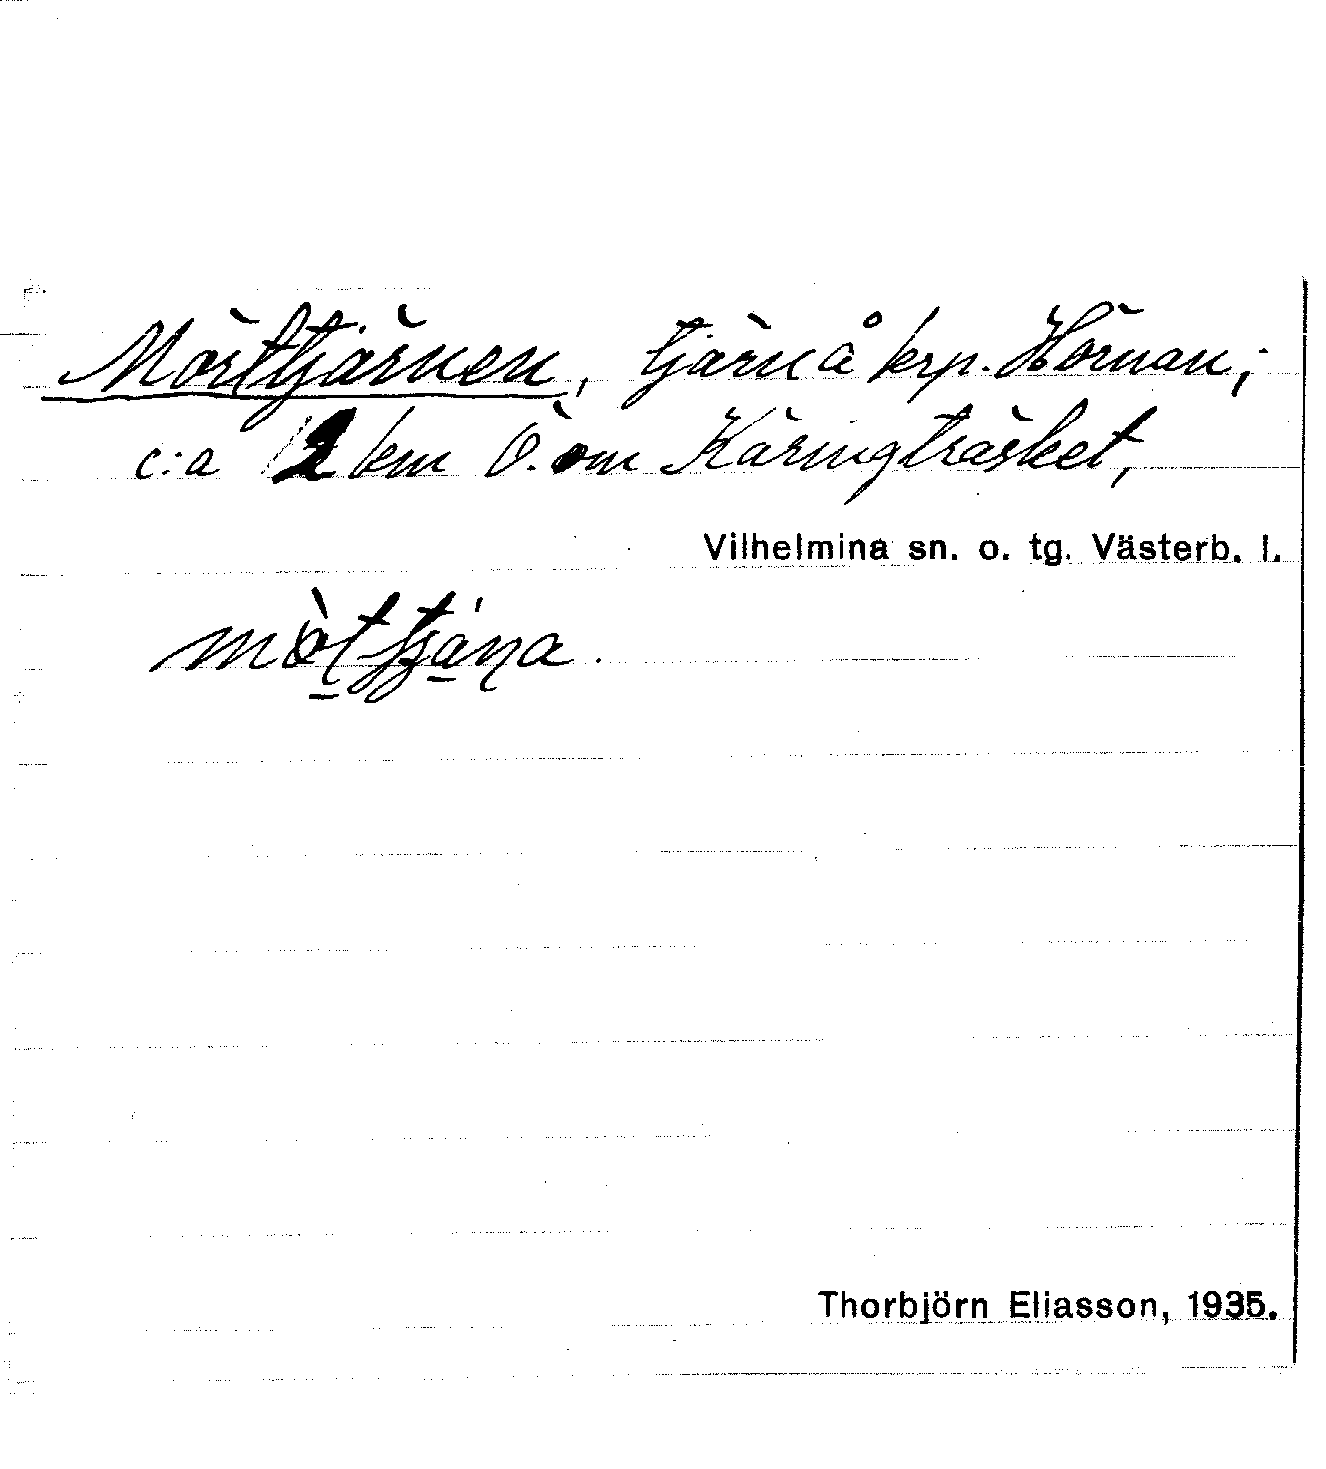 Mörttjärnen, tjärn å krp. Hörnan;
c:a 2 km Ö. om Käringträsket,
Vilhelmina sn. o. tg. Västerb. l.
Thorbjörn Eliasson, 1935.